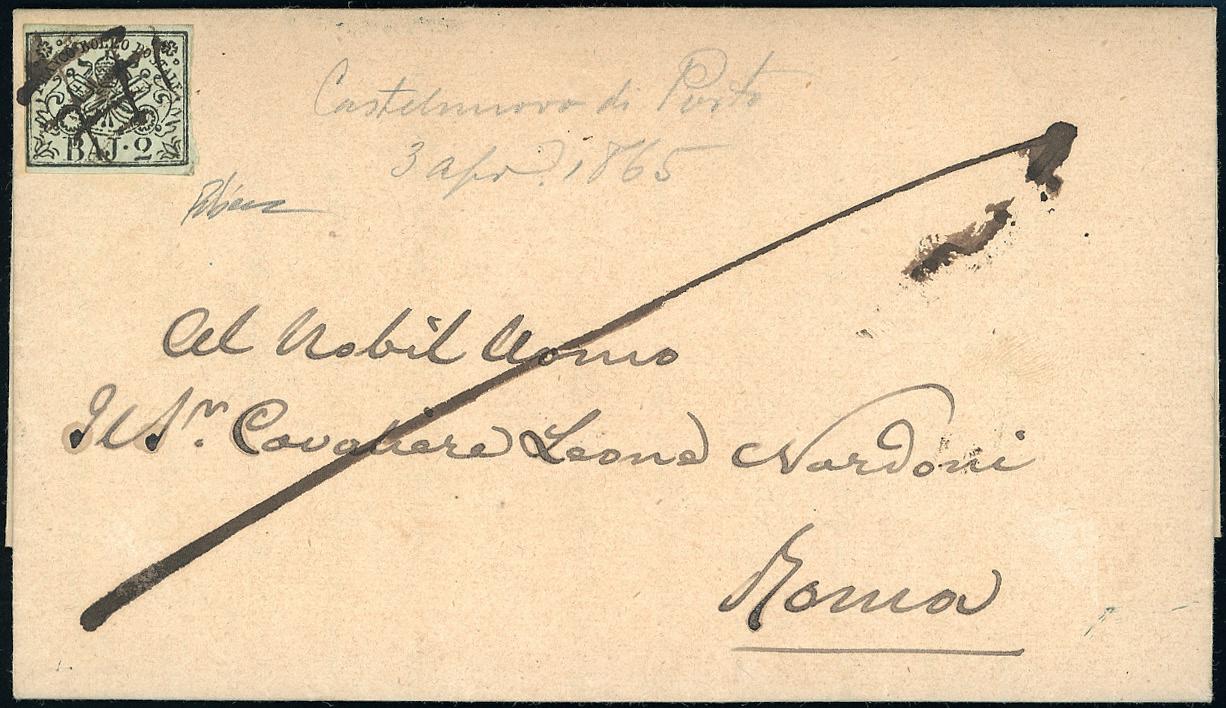 FRANCO BOLLO POSTALE
BAJ·2
Castelnuovo di Porto
3 apr. 1865
Al Nobil Uomo
Il Sr. Cavaliere Leone Nardoni
Roma